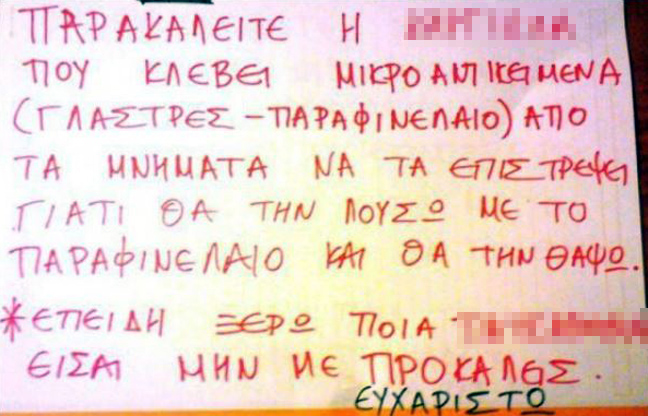 ΠΑΡΑΚΑΛΕΙΤΕ Η
ΠΟΥ ΚΛΕΒΕΙ ΜΙΚΡΟΑΝΤΙΚΕΙΜΕΝΑ
(ΓΛΑΣΤΡΕΣ-ΠΑΡΑΦΙΝΕΛΑΙΟ) ΑΠΟ
ΤΑ ΜΝΗΜΑΤΑ ΝΑ ΤΑ ΕΠΙΣΤΡΕΨΕΙ
ΓΙΑΤΙ ΘΑ ΤΗΝ ΛΟΥΣΩ ΜΕ ΤΟ
ΠΑΡΑΦΙΝΕΛΑΙΟ ΚΑΙ ΘΑ ΤΗΝ ΘΑΨΩ.
*ΕΠΕΙΔΗ ΞΕΡΩ ΠΟΙΑ
ΕΙΣΑΙ ΜΗΝ ΜΕ ΠΡΟΚΑΛΕΙΣ.
ΕΥΧΑΡΙΣΤΩ